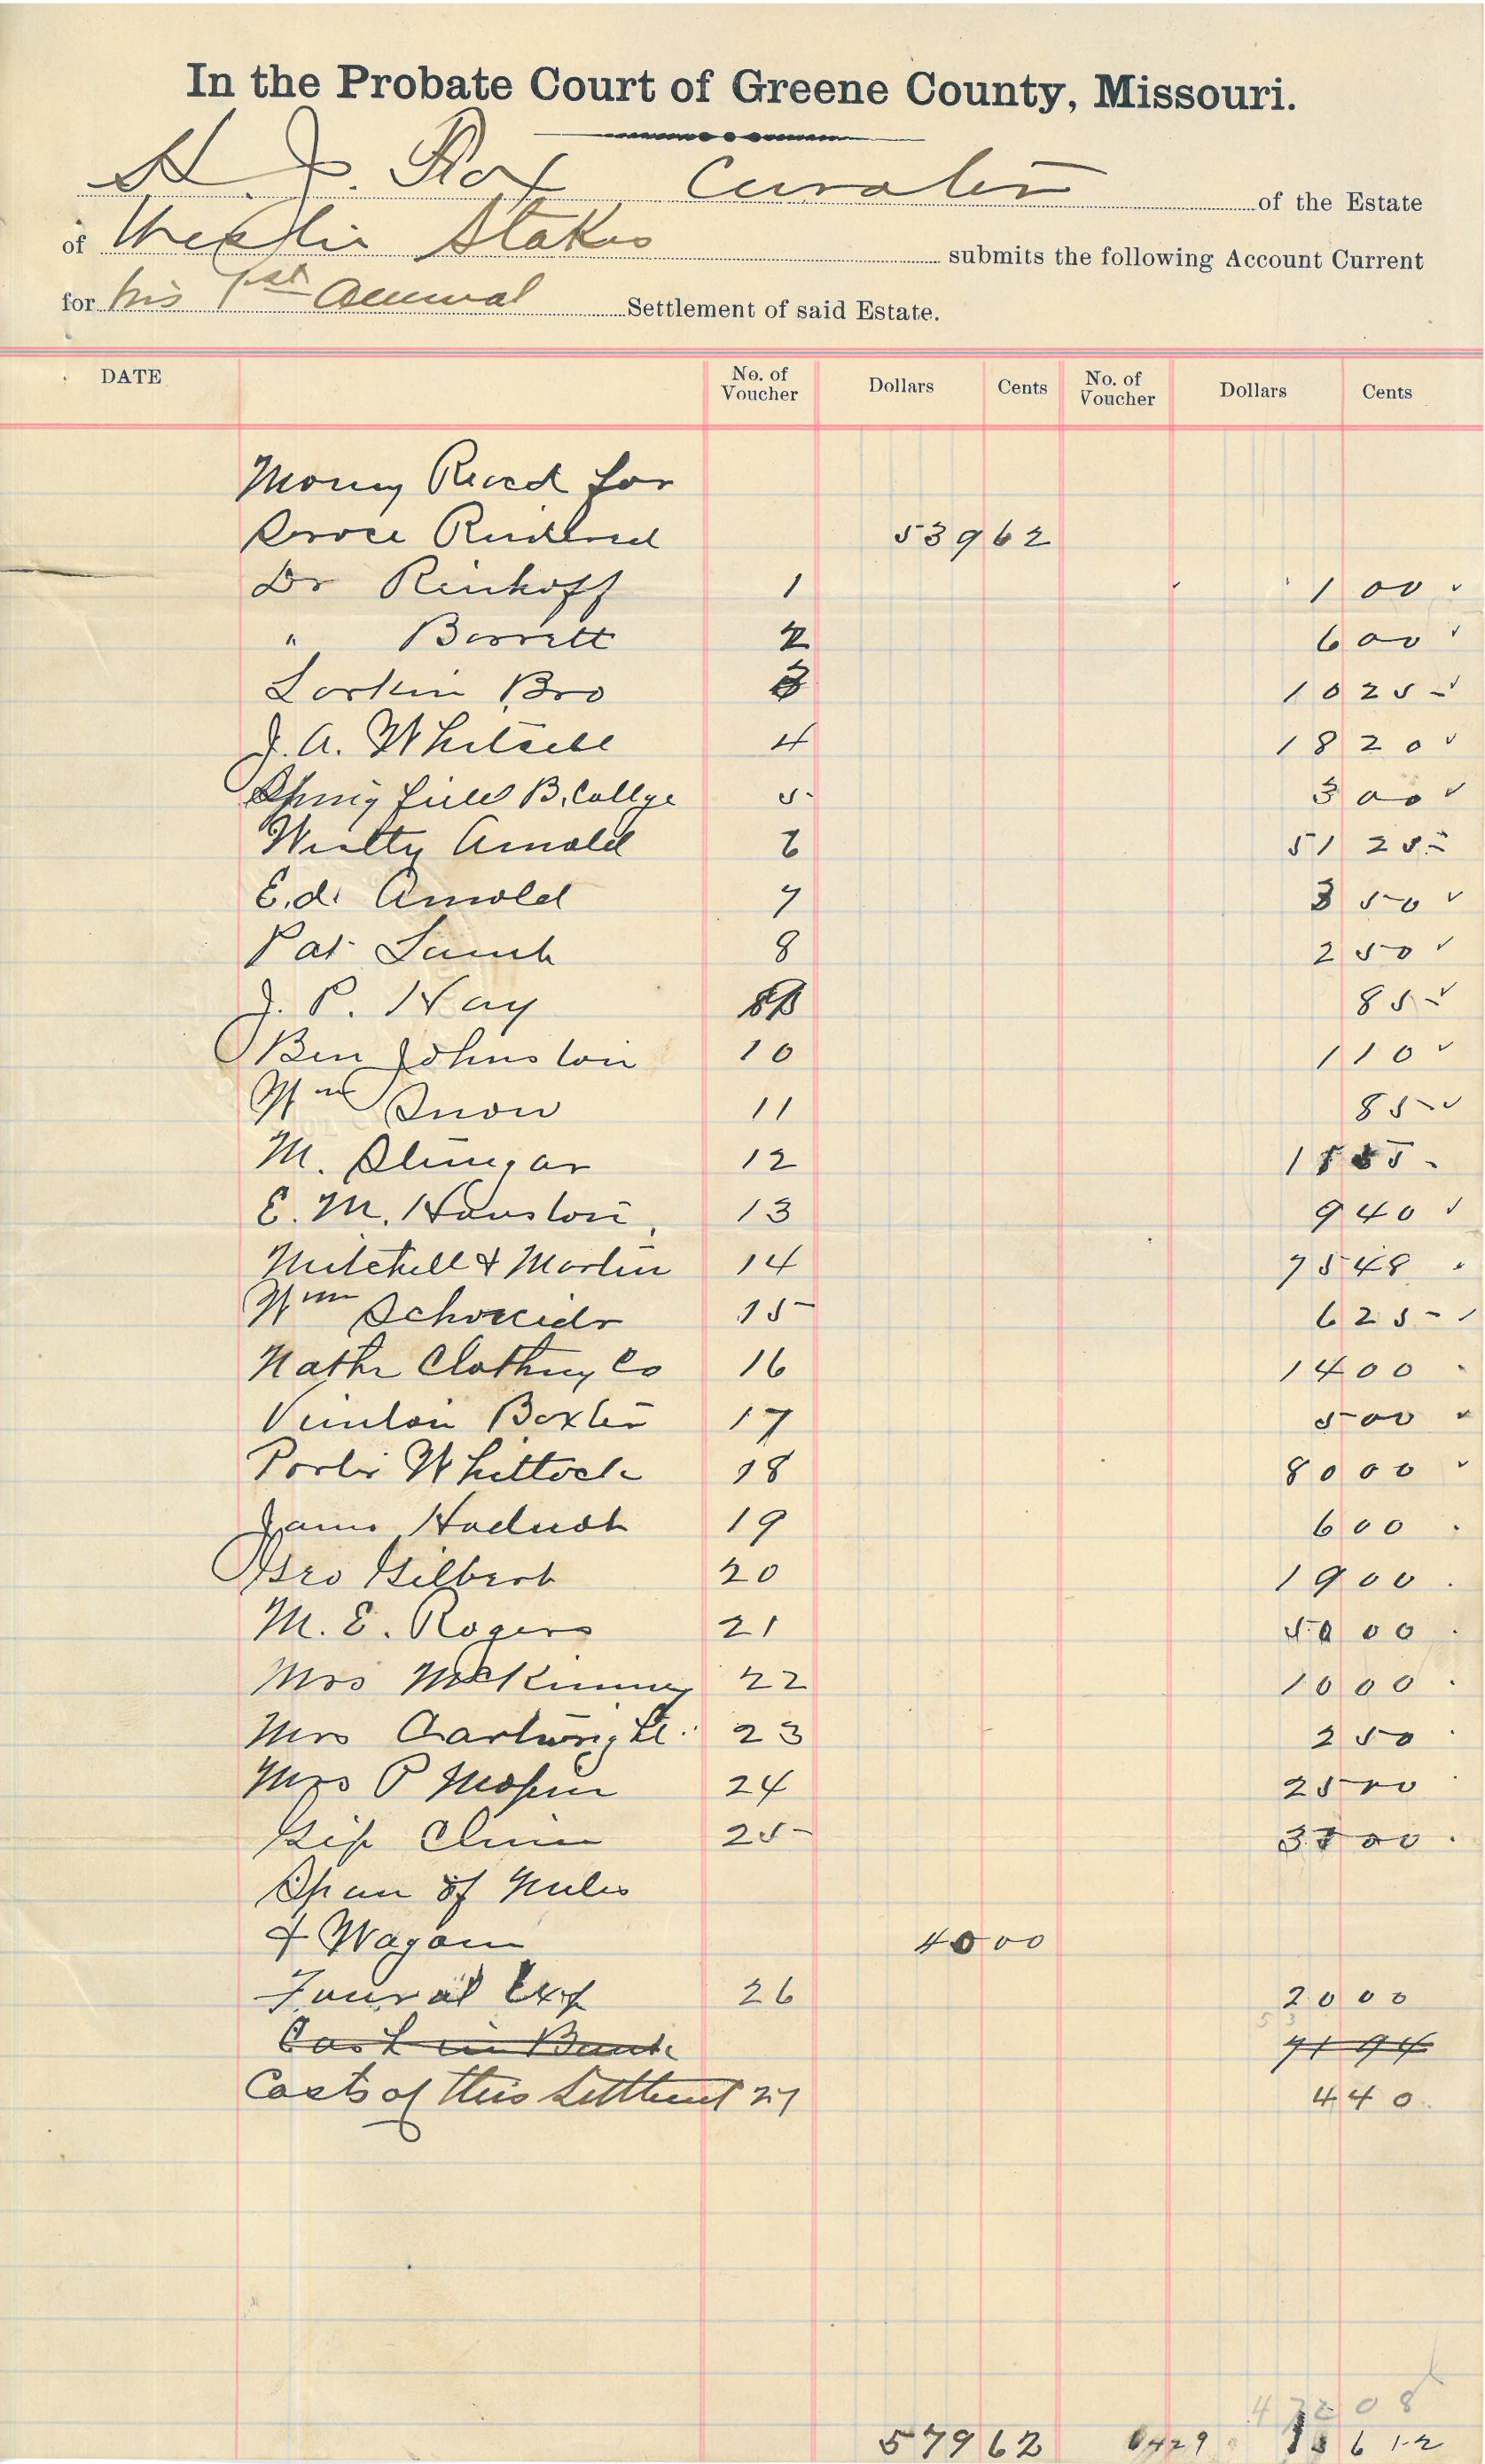 In the Probate Court of Greene County, Missouri.
H. J. Fox Curator of the Estate
of Stokes submits the following Account Current
for his 1st Annual Settlement of said Estate.
DATE No. of Voucher Dollars Cents No. of Voucher Dollars Cents
Money Recd for
539 62
Dr Rinhoff 1 1 00
" Barrett 2 6 00
Larkin Bro 3 10 25
J. A. Whitsell 4 18 20
Springfield B. Collge 5 3 00
Arnold 6 51 25
E.d. Arnold 7 3 50
Pat Lamb 8 2 50
J. P. Hay 85
Ben Johnston 10 1 10
Wm Snow 11 85
M. 12
E. M. Houston 13 9 40
Mitchell & Martin 14 75 48
Wm Schneider 15 6 25
Nathn Clothing Co 16 14 00
Vinton Baxter 17 5 00
Porter Whittock 18 80 00
James 19 6 00
Geo Gilbert 20 19 00
M. E. Rogers 21 50 00
Mrs McKinney 22 10 00
Mrs Cartwright 23 2 50
Mrs P Mopin 24 25 00
25
Span of Mules
& Wagon 40 00
Funral Exp 26 20 00
Cash in Bank 71 94
Costs of this Settlemt 27 4 40
472 08
579 62